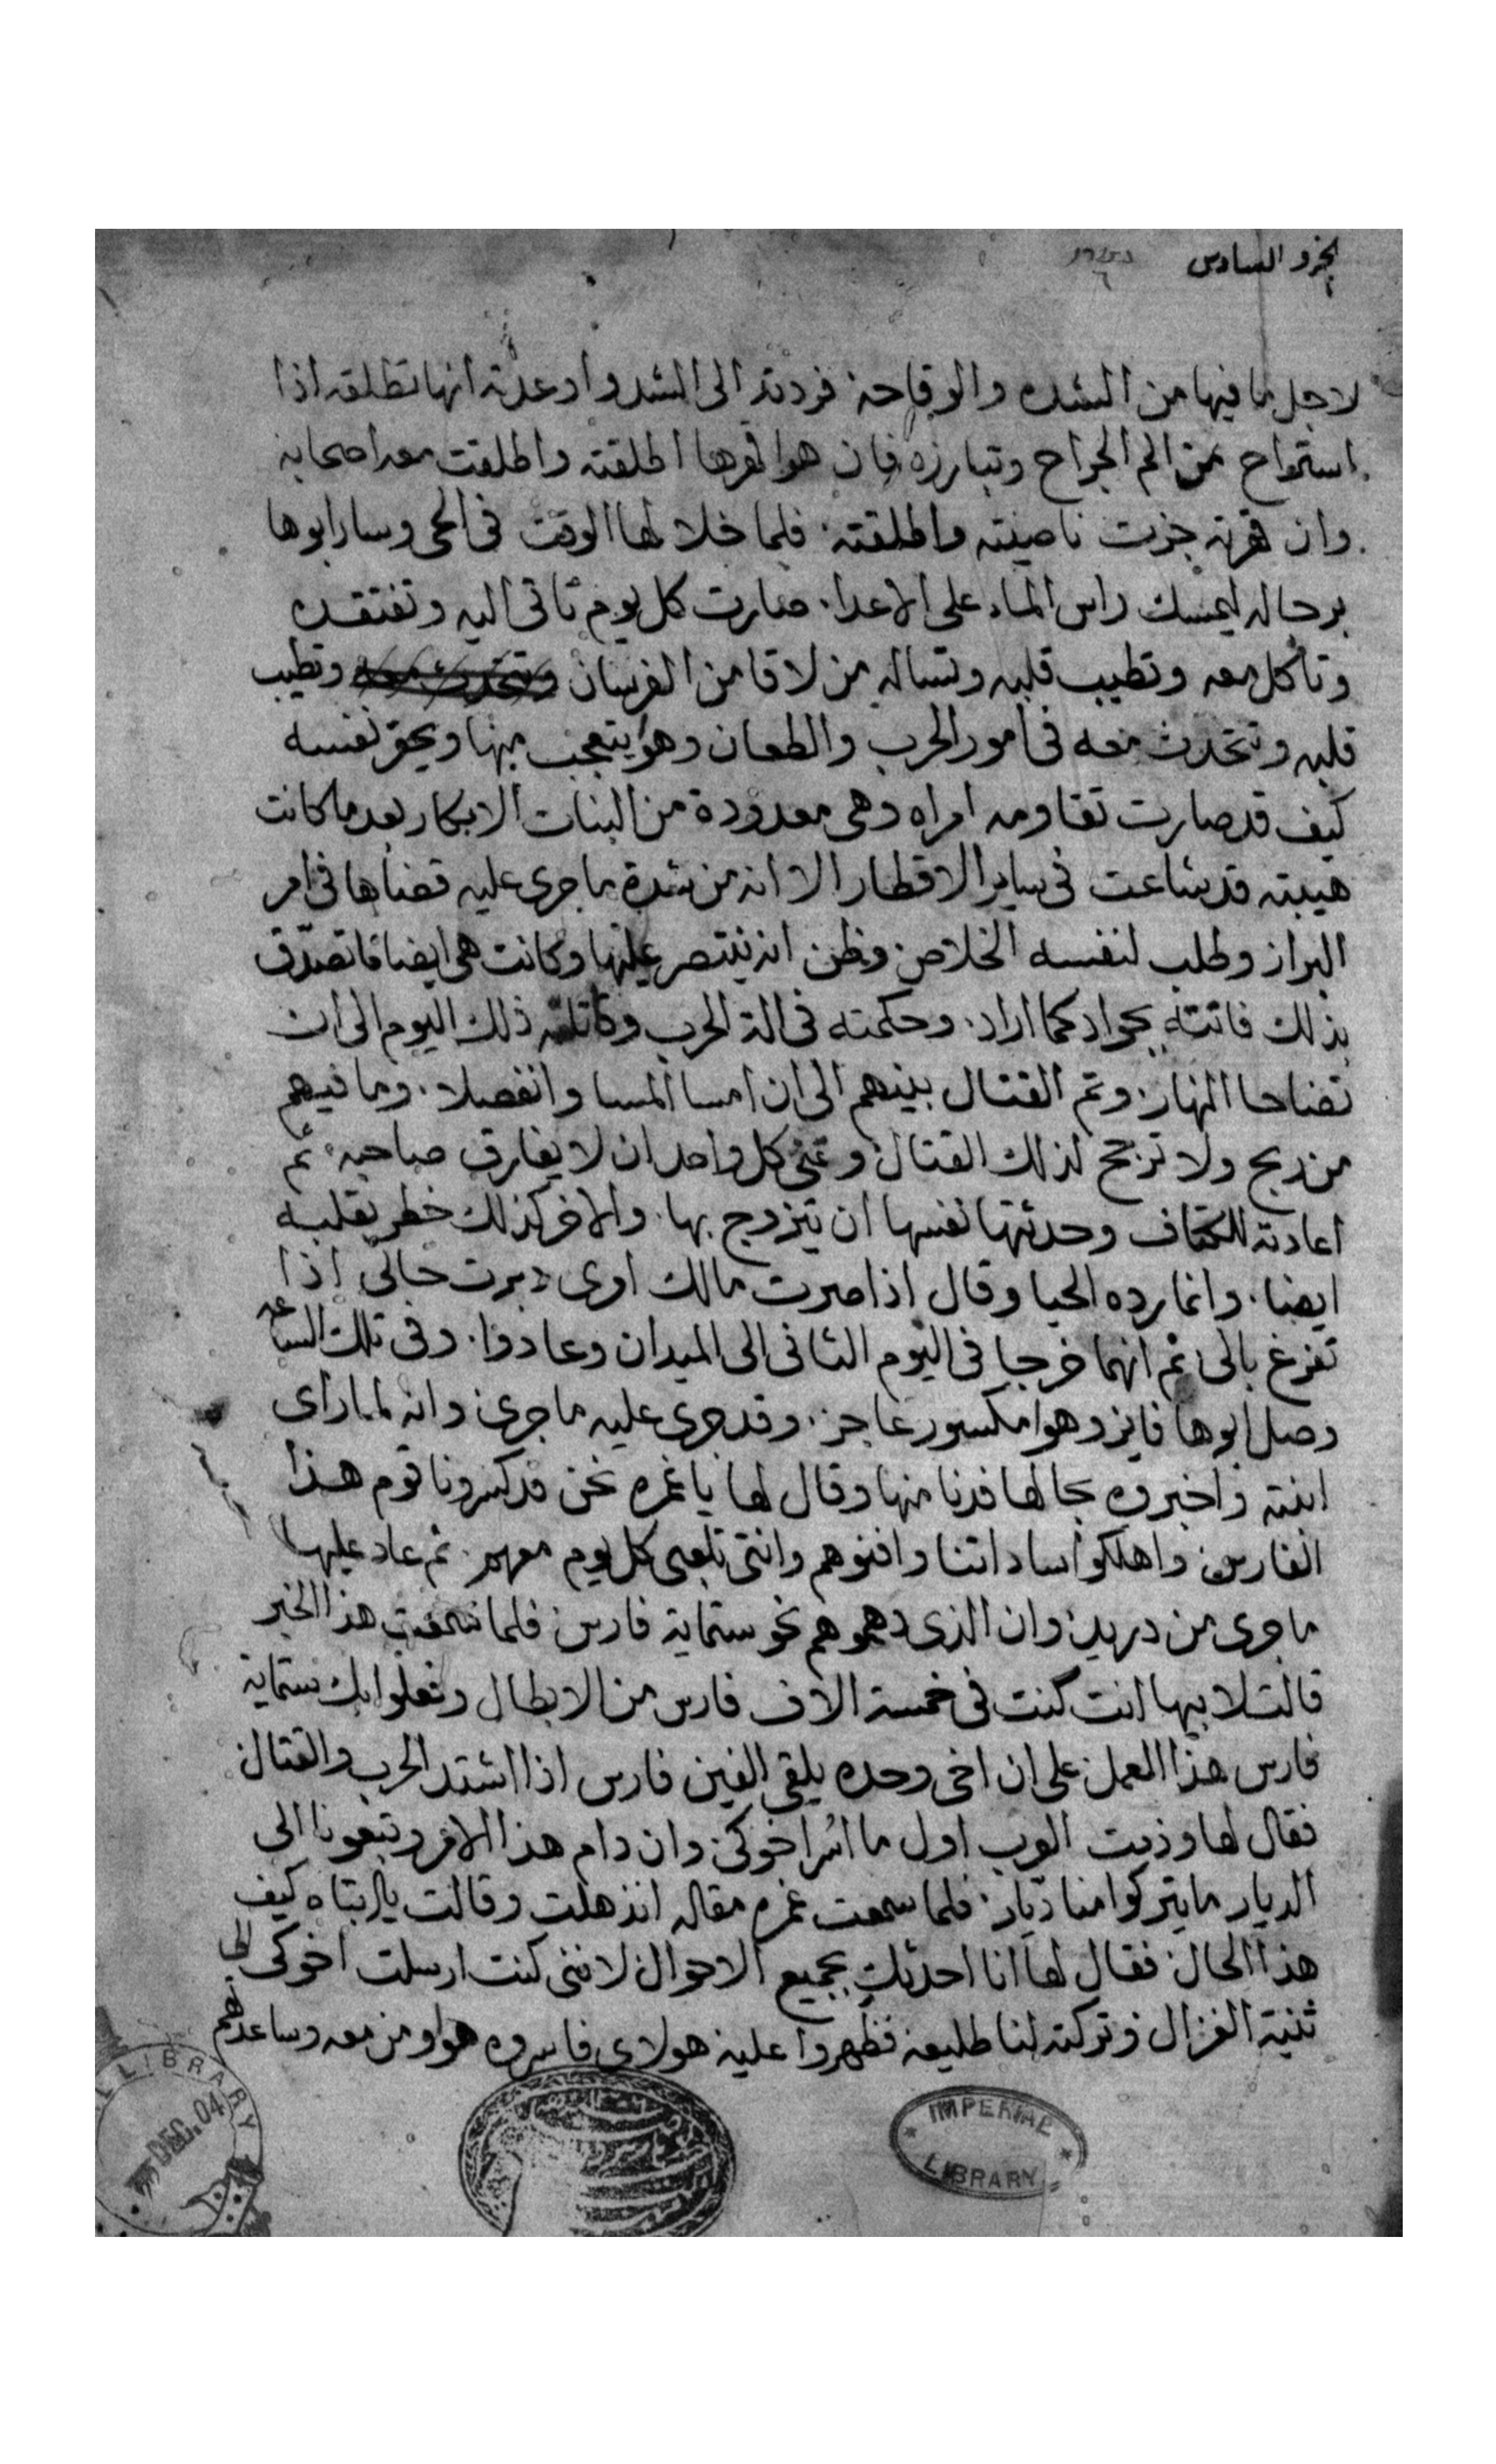 الجزو السادس
لاجل ما فيها من الشده والوقاحة فردته الى الشد واوعدته انها تطلقه اذا
استراح من الم الجراح وتبارزه فان هوا قهرها اطلقته واطلقت معه اصحابه
وان قهرته جزت ناصيته واطلقته فلما خلا لها الوقت فى الحى وسار ابوها
برجاله ليمسك راس الماء على الاعدا صارت كل يوم تاتى اليه وتفتقده
وتاكل معه وتطيب قلبه وتساله من لاقا من الفرسان وتتحدث معه وتطيب
قلبه وتتحدث معه فى امور الحرب والطعان وهوا يتعجب منها ويحق نفسه
كيف قد صارت تقاومه امراه وهى معدودة من البنات الابكار بعد ما كانت
هيبته قد شاعت فى ساير الاقطار الا انه من شدة ما جرى عليه قضاها فى امر
البراز وطلب لنفسه الخلاص وظن انه ينتصر عليها وكانت هى ايضا ما تصدق
بذلك فاتته بجواد كما اراد وحكمته فى الة الحرب وقاتلته ذلك اليوم الى ان
تضاحا النهار وتم القتال بينهم الى ان امسا المسا وانفصلا وما فيهم
من ربح ولا ترجح لذلك القتال وتمنى كل واحد ان لا يفارق صاحبه ثم
اعادته للكتاف وحدثتها نفسها ان يتزوج بها والاخر كذلك خطر بقلبه
ايضا وانما رده الحيا وقال اذا صرت مالك اورى دبرت حالى اذا
تفرغ بالى ثم انهما خرجا فى اليوم الثانى الى الميدان وعادوا وفى تلك الساعه
وصل ابوها فايز وهوا مكسور عاجز وقد جرى عليه ما جرى وانه لما راى
ابنته واخبروه بحالها فدنا منها وقال لها يا غمره نحن قد كسرونا قوم هذا
الفارس واهلكوا ساداتنا وافنوهم وانتى تلعبى كل يوم معهم ثم عاد عليها
ما جرى من دريد وان الذى دهموهم نحو ستماية فارس فلما سمعت هذا الخبر
قالت لابيها انت كنت فى خمسة الاف فارس من الابطال وفعلوا بك ستماية
فارس هذا العمل على ان اخى وحده يلقى الفين فارس اذا اشتد الحرب والقتال
فقال لها وذمت العرب اول ما اسر اخوكى وان دام هذا الامر وتبعونا الى
الديار ما يتركوا منا ديار فلما سمعت غمره مقاله انذهلت وقالت يا ابتاه كيف
هذا الحال فقال لها انا احدثك بجميع الاحوال لاننى كنت ارسلت اخوكى الى
ثنية الغزال وتركته لنا طليعه فظهروا عليه هولاى فاسروه هوا ومن معه وساعدهم
IMPERIAL LIBRARY
L LIBRARY
DEC. 04